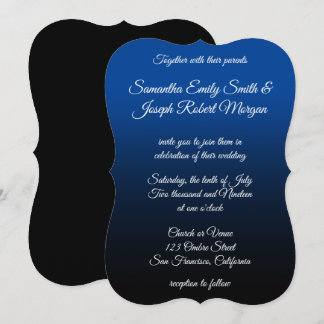 Together with their parents
Samantha Emily Smith &
Joseph Robert Morgan
invite you to join them in
celebration of their wedding
Saturday, the tenth of July
Two thousand and Nineteen
at one o'clock
Church or Venue
123 Ombre Street
San Francisco, California
reception to follow